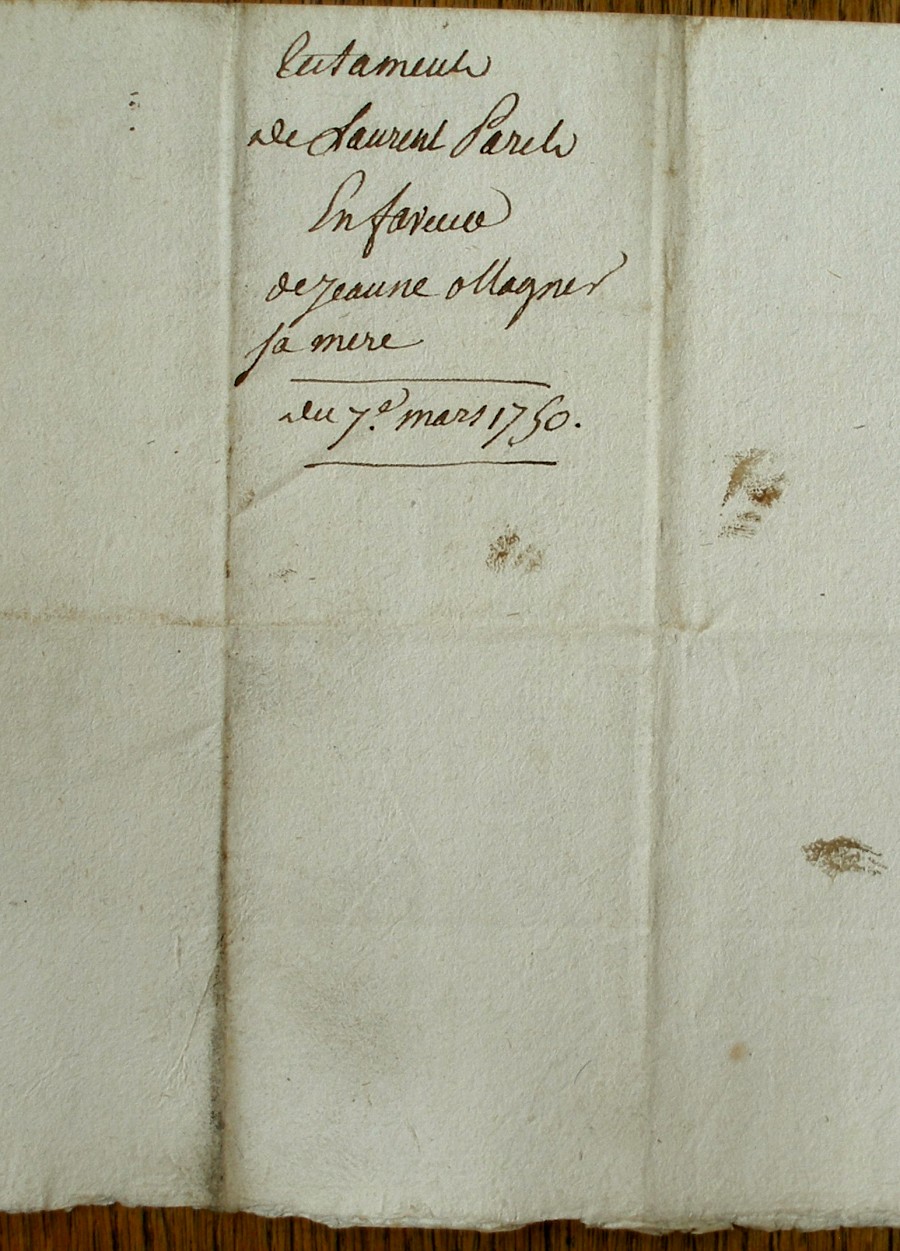 Testament
de Laurent Paret
En faveur
de jeanne ollagner
sa mere
du 7.e mars 1750.